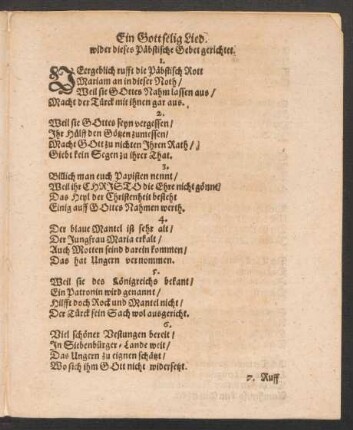 Ein Gottselig Lied.
wider dieses Päbstische Gebet gerichtet.
1.
VErgeblich rufft die Päbstisch Rott
Mariam an in dieser Noth/
Weil sie GOttes Nahm lassen aus/
Macht der Türck mit ihnen gar aus.
2.
Weil sie GOttes seyn vergessen/
Ihr Hülff den Götzen zumessen/
Macht GOtt zu nichten Ihren Rath/
Giebt kein Segen zu ihrer That.
3.
Billich man euch Papisten nennt/
Weil ihr CHRISTO die Ehre nicht gönnt/
Das Heyl der Christenheit besteht
Einig auff GOttes Nahmen werth.
4.
Der blaue Mantel ist sehr alt/
Der Jungfrau Maria erkalt/
Auch Motten seind darein kommen/
Das hat Ungern vernommen.
5.
Weil sie des Königreichs bekant/
Ein Patronin wird genannt/
Hilfft doch Rock und Mantel nicht/
Der Türck sein Sach wol ausgericht.
6.
Viel schöner Vestungen bereit/
In Siebenbürger-Lande weit/
Das Ungern zu eignen schätzt/
Wo sich ihm GOtt nicht widersetzt.
7. Ruff